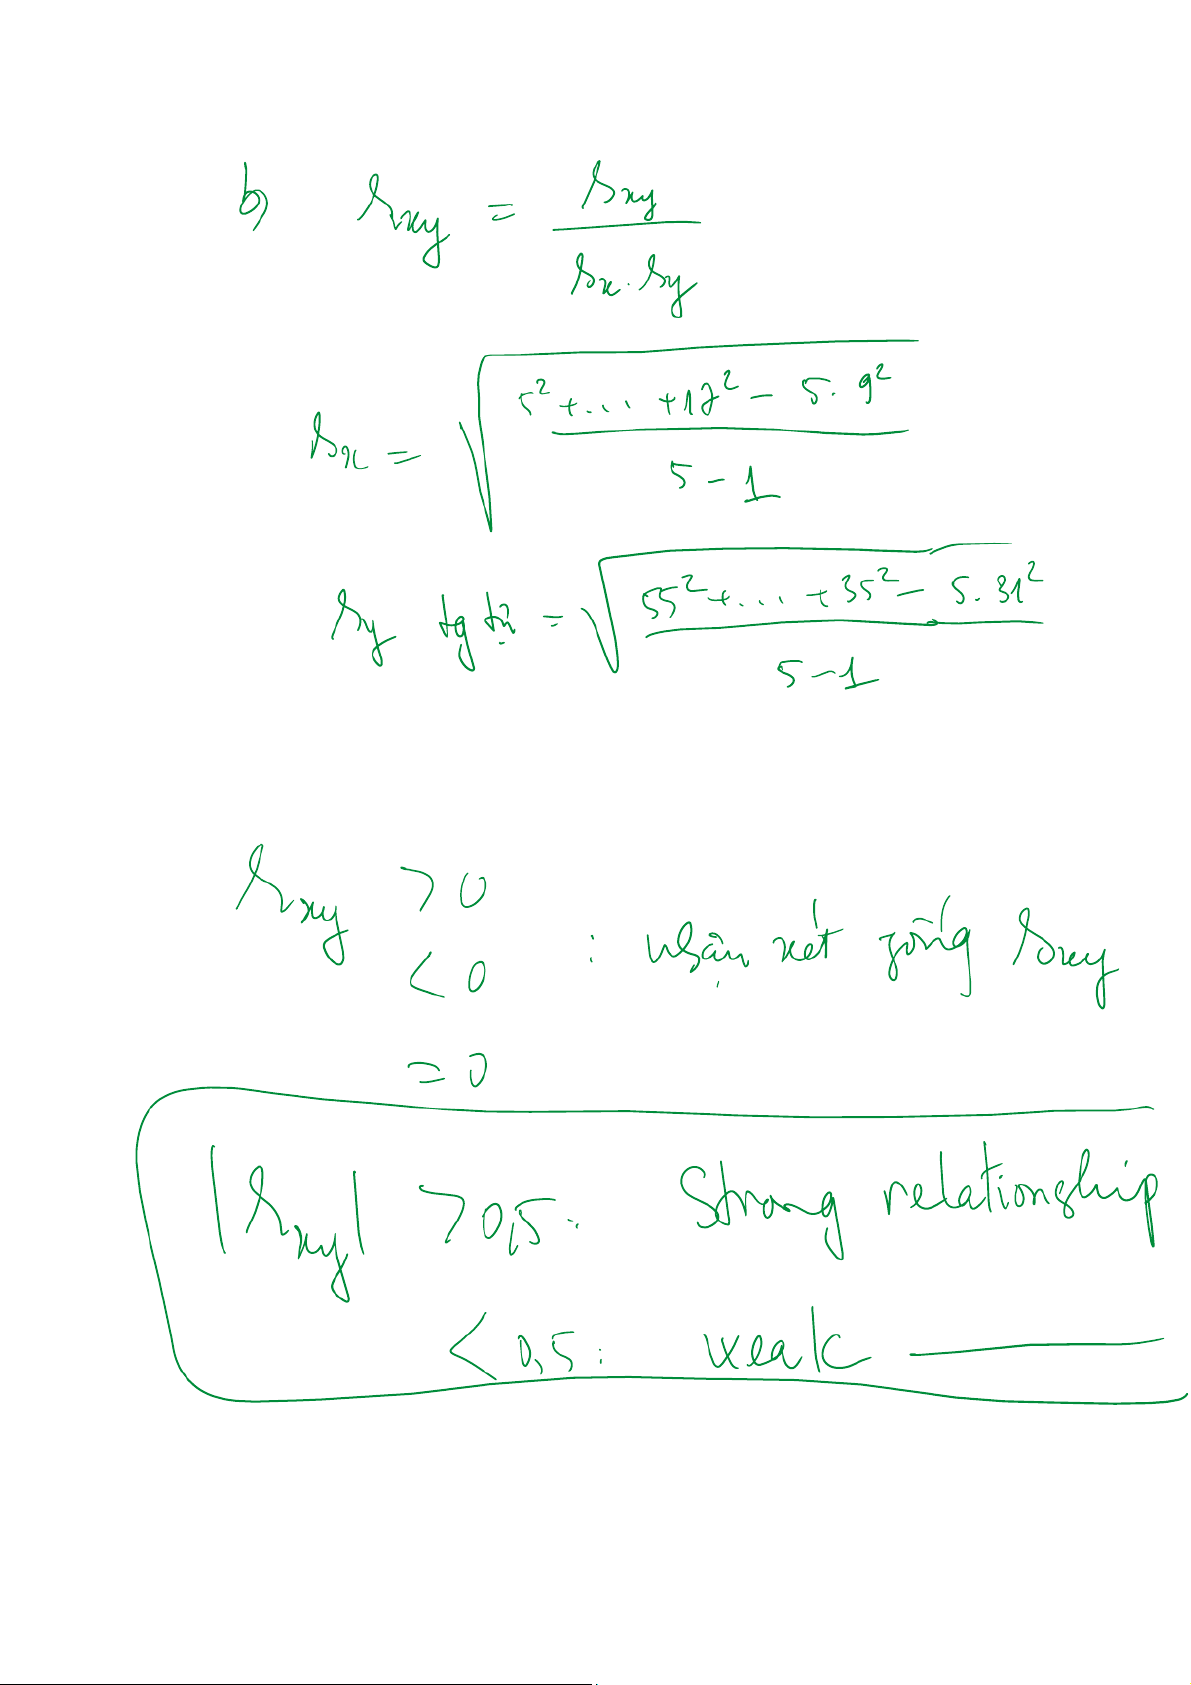 b) r_xy = s_xy / (s_x . s_y)
s_x = √((5² + ... + 12² - 5.9²) / (5 - 1))
s_y tg tự = √((55² + ... + 35² - 5.31²) / (5 - 1))
r_xy > 0
< 0 : nhận xét giống s_xy
= 0
|r_xy| > 0,5: Strong relationship
< 0,5: weak ———